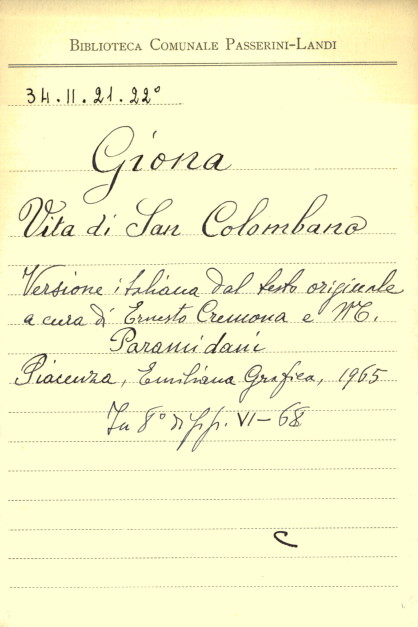 BIBLIOTECA COMUNALE PASSERINI-LANDI
34.II.21.22°
Giona
Vita di San Colombano
Versione italiana dal testo originale
a cura di Ernesto Cremona e M.
Paramidani
Piacenza, Emiliana Grafica, 1965
In 8° di pp. VI-68
C